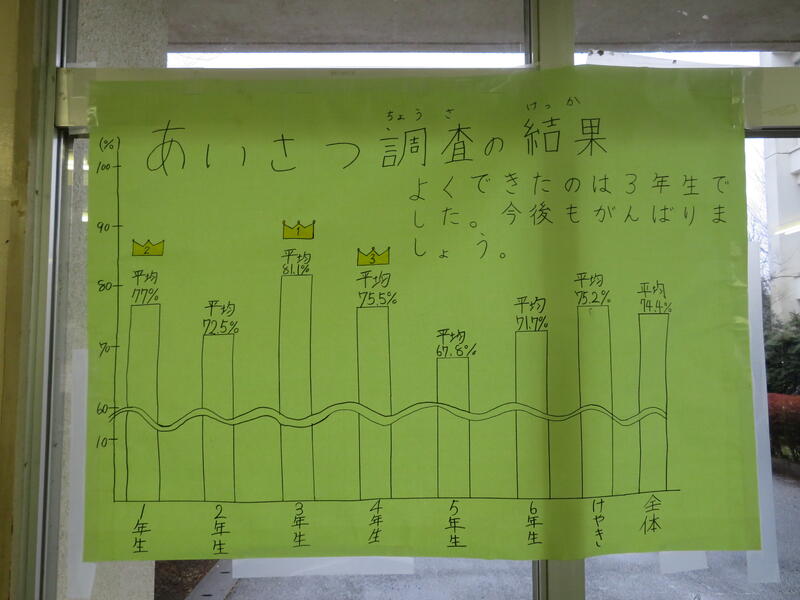 ちょうさ けっか
あいさつ調査の結果
よくできたのは3年生で
した。今後もがんばりま
しょう。
(%)
100
90
80
70
60
10
2
平均
77%
平均
72.5%
1
平均
81.1%
3
平均
75.5%
平均
67.8%
平均
71.7%
平均
75.2%
平均
74.4%
1年生
2年生
3年生
4年生
5年生
6年生
けやき
全体